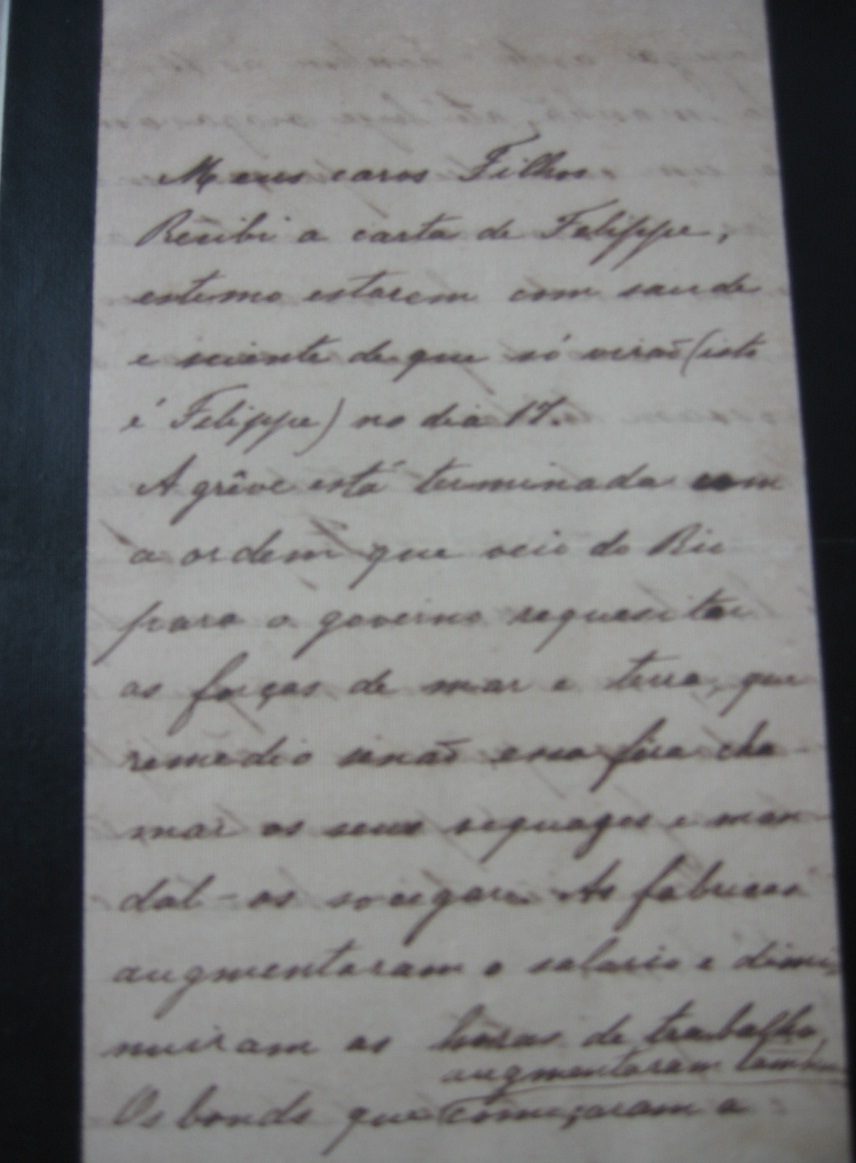 Meus caros Filhos
Recibi a carta de Felippe,
estimo estarem com saude
e sciente de que só virão (isto
é Felippe) no dia 17.
A grêve está terminada com
a ordem que veio do Rio
para o governo requesitar
as forças de mar e terra, que
remedio senão essa fera cha-
mar os seus sequazes e man-
dal-os socegar. As fabricas
augmentaram o salario e dimi-
nuiram as horas de trabalho,
augmentaram tambem
Os bonds que começaram a